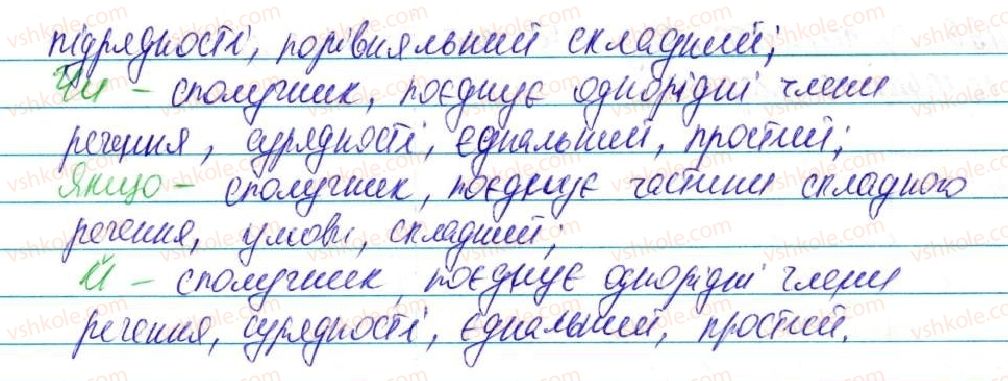 підрядності, порівняльний складний;
Чи – сполучник, поєднує однорідні члени
речення, сурядності, єднальний, простий;
Якщо – сполучник, поєднує частини складного
речення, умови, складний;
Й – сполучник, поєднує однорідні члени
речення, сурядності, єднальний, простий.